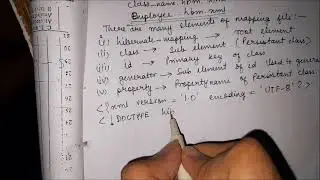 class-name.hbm.xml
Employee.hbm.xml
There are many elements of mapping file :-
(i) hibernate-mapping → root element
(ii) class → Sub element of (Persistant class)
(iii) id → Primary key of class
(iv) generator → Sub element of id Used to generate
(v) property → Property name of Persistent class
<?xml version = '1.0' encoding = 'UTF-8' ?>
<!DOCTYPE hib